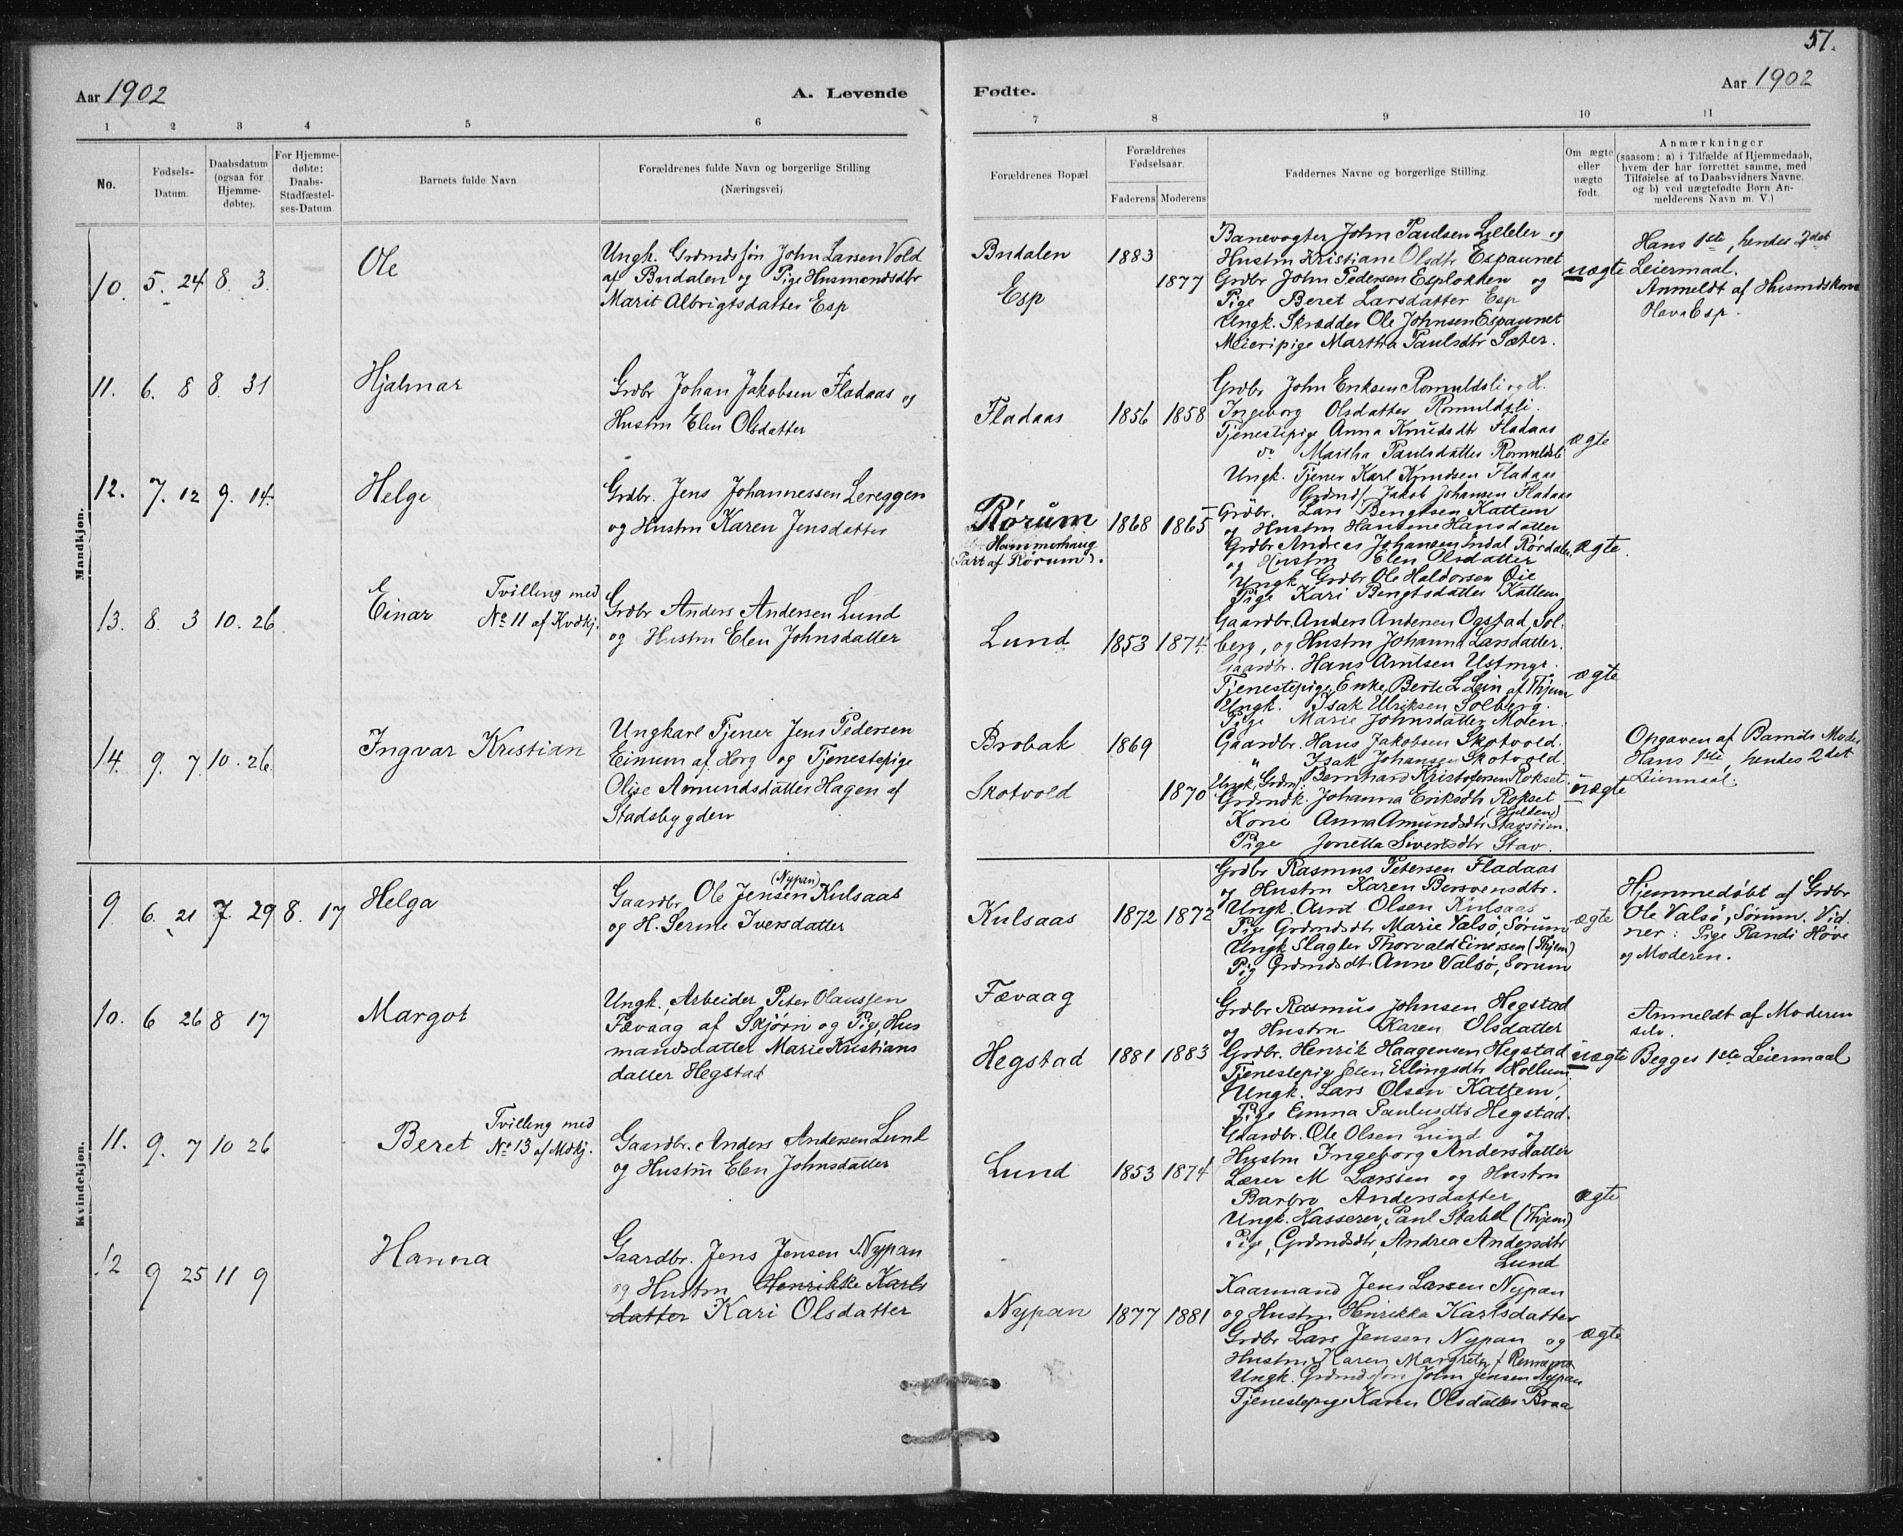 57.
Aar 1902
A. Levende
Fødte.
Aar 1902
1 2 3 4 5 6 7 8 9 10 11
No.
Fødsels-Datum.
Daabsdatum (ogsaa for Hjemme-døbte).
For Hjemme-døbte: Daabs-Stadfæstel-ses-Datum.
Barnets fulde Navn
Forældrenes fulde Navn og borgerlige Stilling
(Næringsvei)
Forældrenes Bopæl
Forældrenes Fødselsaar.
Faderens Moderens
Faddernes Navne og borgerlige Stilling.
Om ægte eller uægte født.
Anmærkninger
(saasom: a) i Tilfælde af Hjemmedaab,
hvem der har forrettet samme, med
Tilføielse af to Daabsvidners Navne,
og b) ved uægtefødte Børn An-
melderens Navn m. V.)
Mandkjøn.
10. 5. 24 8. 3.
Ole
Ungk. Grdmdssøn John Larsen Vold
af Budalen og Pige Husmandsdtr
Marit Albrigtsdatter Esp
Budalen 1883
Esp 1877
Banevogter John Paulsen Leleler og
Hustru Kristiane Olsdtr Espaunet
Grdbr John Pedersen Espløkken og
Pige Beret Larsdatter Esp
Ungk. Skrædder Ole Johnsen Espaunet
Meieripige Martha Paulsdtr Sæter.
uægte
Hans 1ste, hendes 2det
Leiermaal.
Anmeldt af Husmdskone
Hava Esp.
11. 6. 8 8. 31
Hjalmar
Grdbr Johan Jakobsen Fladaas og
Hustru Elen Olsdatter
Fladaas 1856 1858
Grdbr John Eriksen Romuldsli og H.
Ingeborg Olsdatter Romuldsli.
Tjenestepige Anna Knudsdtr Fladaas
do Martha Paulsdatter Romuldsli
Ungk. Tjener Karl Knudsen Fladaas
Grdmds/ Jakob Johansen Fladaas
ægte
12. 7. 12 9. 14.
Helge
Grdbr. Jens Johannessen Lereggen
og Hustru Karen Jensdatter
Rørum 1868 1865
Hammerhaug
(Part af Rørum).
Grdbr. Lars Bengtsen Kattem
og Hustru Hansine Hansdatter
Grdbr Andreas Johansen Indal Rørdalen
og Hustru Elen Olsdatter
Ungk Grdbr Ole Haldorsen Øie
Pige Kari Bengtsdatter Kattem
ægte.
13. 8. 3 10. 26
Einar
Tvilling med
No 11 af Kvdkj.
Grdbr Anders Andersen Lund
og Hustru Elen Johnsdatter
Lund 1853 1874
Gaardbr. Anders Andersen Ogstad, Sol-
berg, og Hustru Johanna Larsdatter.
Gaardbr. Hans Arntsen Ustmyr.
Tjenestepige Enke Berte L Lein af Thjem
Ungk. Isak Ulriksen Solberg.
Pige Marie Johnsdatter Moten.
ægte
14. 9. 7 10. 26.
Ingvar Kristian
Ungkarl Tjener Jens Pedersen
Einum af Horg og Tjenestepige
Olise Amundsdatter Hagen af
Stadsbygden
Brobak 1869
Skotvold 1870
Gaardbr. Hans Jakobsen Skotvold.
" Isak Johansen Skotvold.
Ungk. Grdm/: Bernhard Kristofersen Rokset
Grdmdk Johanna Eriksdtr Rokset
Kone Anna Amundsdtr (Hulten) Stavsøien.
Pige Jonetta Sivertsdtr Stav.
uægte
Opgaven af Barnets Moder
Hans 1ste, hendes 2det
Leiermaal.
Kvindekjøn.
9 6. 21 7. 29 8. 17
Helga
Gaardbr Ole Jensen (Nypan) Kulsaas
og H. Serine Iversdatter
Kulsaas 1872 1872
Grdbr Rasmus Petersen Fladaas
og Hustru Karen Bersvensdtr.
Ungk. Arnt Olsen Kulsaas
Pige Grdmdsdtr Marie Valsø, Sørum
Ungk Slagter Thorvald Einersen (Thjem)
Pig Grdmdsdtr Anne Valsø, Sørum
ægte
Hjemmedøbt af Grdbr
Ole Valsø, Sørum. Vid-
ner: Pige Randi Høve
og Moderen.
10. 6 26 8 17
Margot
Ungk. Arbeider Peter Olaussen
Fævaag af Skjørn og Pige, Hus
mandsdatter Marie Kristians
datter Hegstad
Fævaag
Hegstad 1881 1883
Grdbr Rasmus Johnsen Hegstad
og Hustru Karen Olsdatter
Grdbr. Henrik Haagensen Hegstad
Tjenestepig Elen Erlingsdtr Hollum
Ungk. Lars Olsen Kattem,
Pige Emma Paulusdtr Hegstad
uægte
Anmeldt af Moderen
selv.
Begges 1ste Leiermaal
11. 9. 7 10 26
Beret
Tvilling med
No 13 af Mdkj.
Gaardbr. Anders Andersen Lund
og Hustru Elen Johnsdatter
Lund 1853 1874
Gaardbr. Ole Olsen Lund og
Hustru Ingeborg Andersdatter
Lærer M Larssen og Hustru
Barbro Andersdatter
Ungk. Kasserer, Paul Stabel (Thjem)
Pige, Grdmdsdtr, Andrea Andersdtr
Lund
ægte
12 9 25 11 9
Hanna
Gaardbr. Jens Jensen Nypan
og Hustru Henrikke Karls
datter Kari Olsdatter
Nypan 1877 1881
Kaarmand Jens Larsen Nypan
og Hustru Henrikka Karlsdatter
Grdbr Lars Jensen Nypan og
Hustru Karen Margrete
Ungk. Grdmdssøn John Jensen Nypan
Tjenestepige Karen Olsdatter Braa
ægte